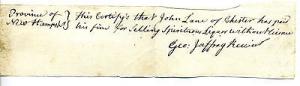 Province of } This Certifys that John Lane of Chester has paid
New Hampsr } his fine for Selling Spirituous Liquor without license
Geo: Jaffrey